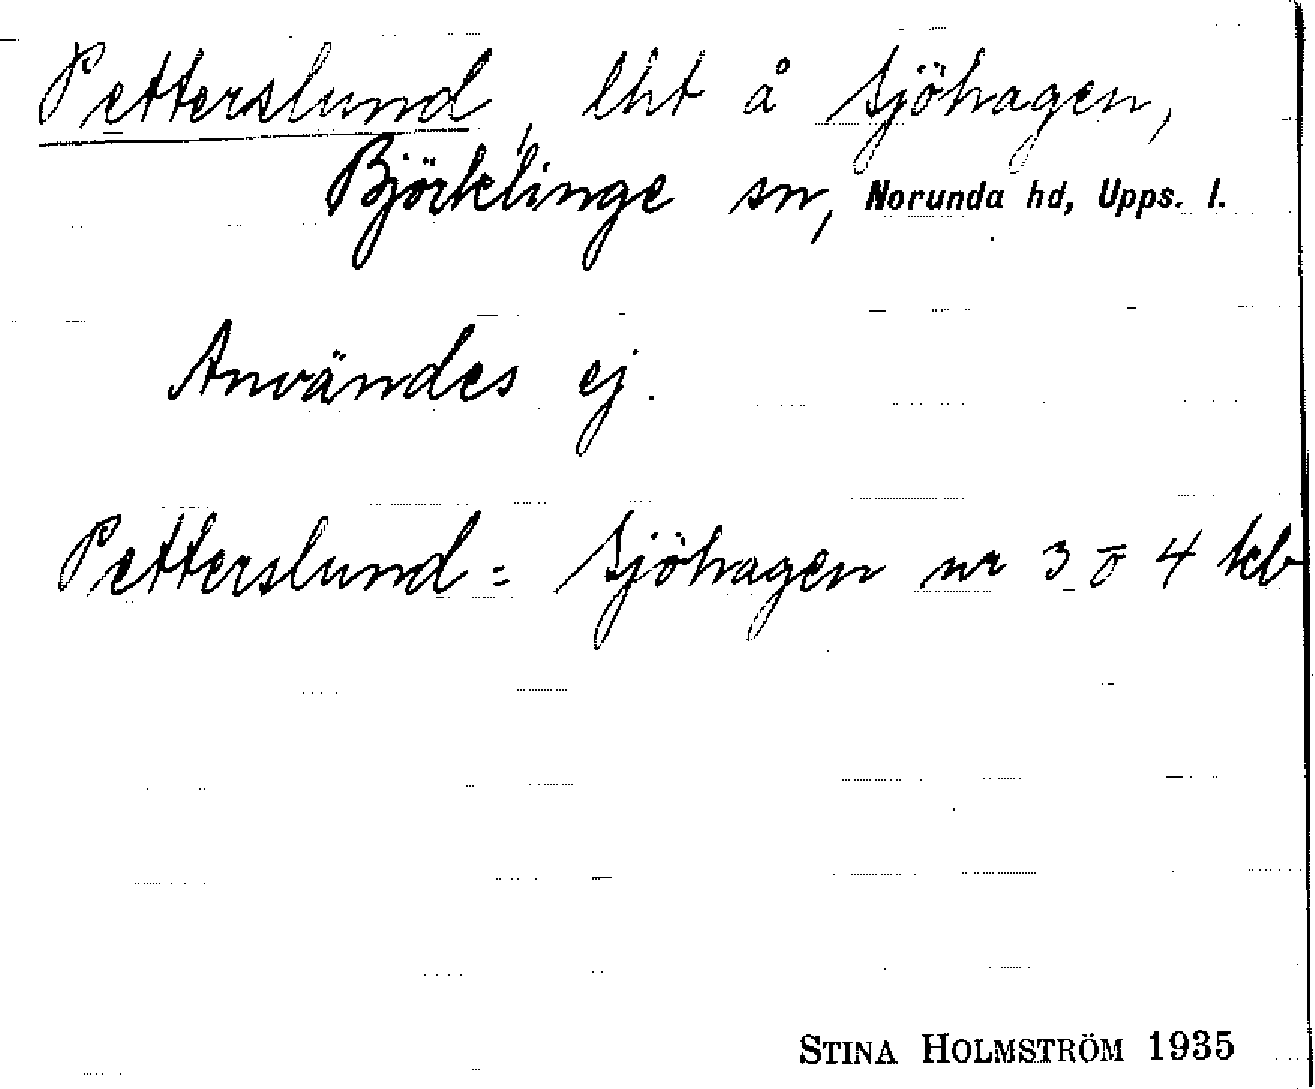 Petterslund, lht å Sjöhagen,
Björklinge sn, Norunda hd, Upps. l.
Användes ej.
Petterslund = Sjöhagen nr 3 o 4 kb
STINA HOLMSTRÖM 1935